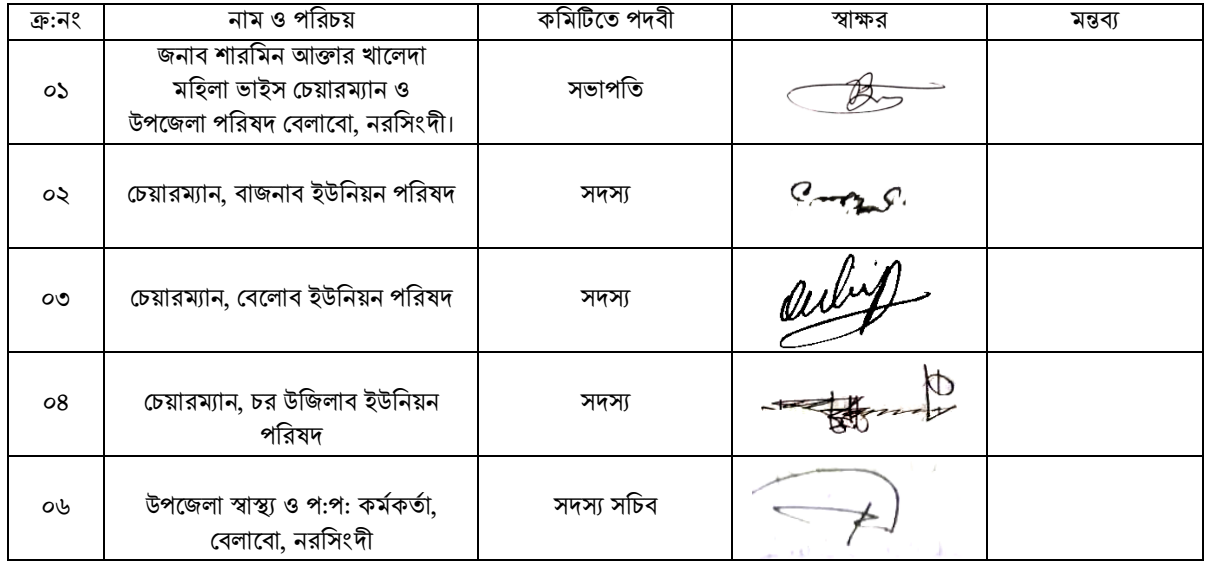 ক্র:নং নাম ও পরিচয় কমিটিতে পদবী স্বাক্ষর মন্তব্য
০১ জনাব শারমিন আক্তার খালেদা
মহিলা ভাইস চেয়ারম্যান ও
উপজেলা পরিষদ বেলাবো, নরসিংদী। সভাপতি
০২ চেয়ারম্যান, বাজনাব ইউনিয়ন পরিষদ সদস্য
০৩ চেয়ারম্যান, বেলোব ইউনিয়ন পরিষদ সদস্য
০৪ চেয়ারম্যান, চর উজিলাব ইউনিয়ন
পরিষদ সদস্য
০৬ উপজেলা স্বাস্থ্য ও প:প: কর্মকর্তা,
বেলাবো, নরসিংদী সদস্য সচিব